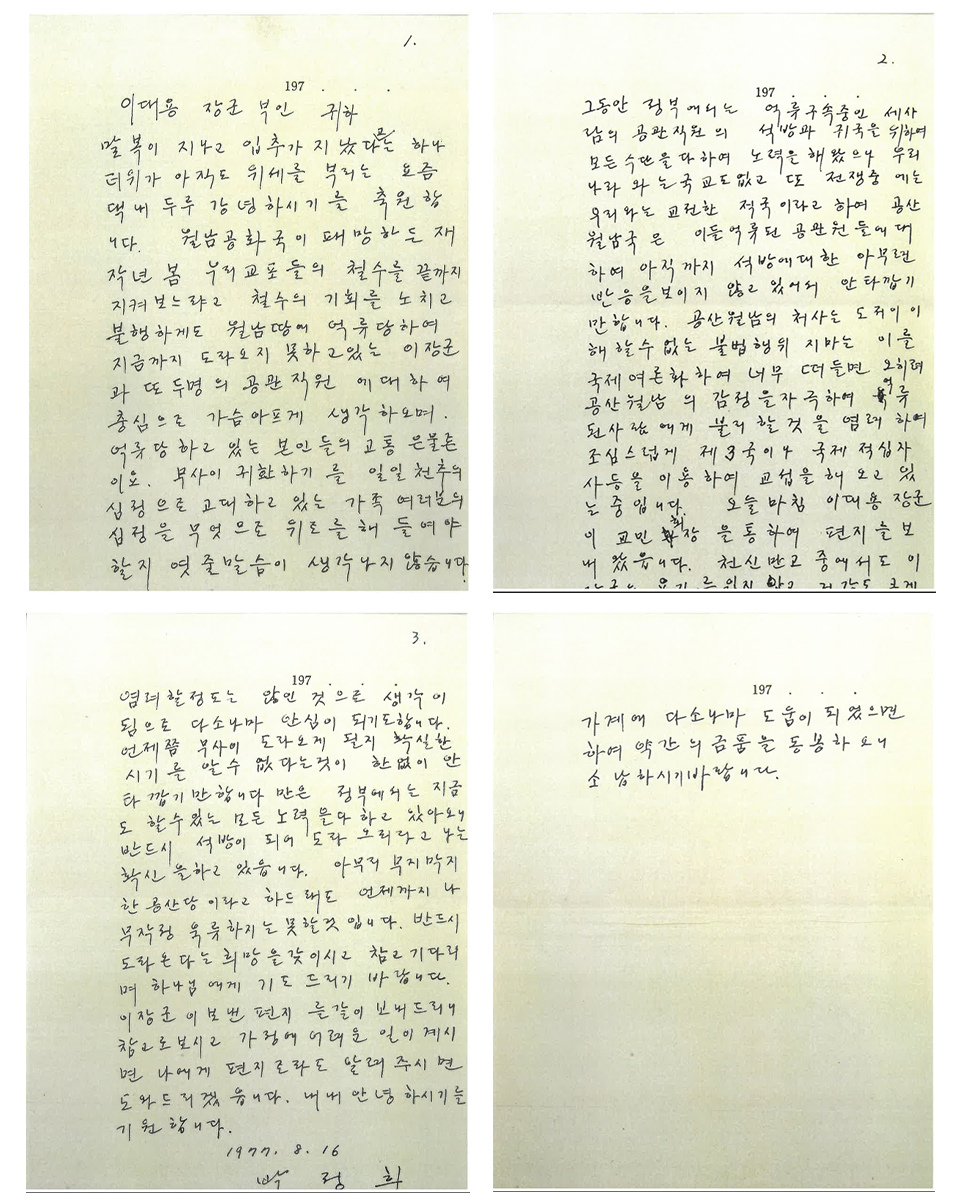 1.
197 . . .
이대용 장군 부인 귀하
말복이 지나고 입추가 지났다고는 하나
더위가 아직도 위세를 부리는 요즘
댁내 두루 강녕하시기를 축원합
니다. 월남공화국이 패망하든 재
작년 봄 우리교포들의 철수를 끝까지
지켜보느라고 철수의 기회를 노치고
불행하게도 월남땅에 억류당하여
지금까지 도라오지 못하고있는 이장군
과 또 두명의 공관직원 에대하여
충심으로 가슴아프게 생각하오며.
억류당하고 있는 본인들의 고통 은물론
이요. 무사이 귀환하기를 일일천추의
심정으로 고대하고 있는 가족 여러분의
심정을 무엇으로 위로를해 들여야
할지 엿줄말슴이 생각나지 않습니다
2.
197 . . .
그동안 정부에서는 억류구속중인 세사
람의 공관직원의 석방과 귀국을 위하여
모든수단을다하여 노력을해왔으나 우리
나라 와는국교도없고 또 전쟁중에는
우리와는 교전한 적국이라고하여 공산
월남국은 이들억류된 공관원들에대
하여 아직까지 석방에대한 아무런
반응을보이지 않고있어서 안타깝기
만합니다. 공산월남의 처사는 도저이이
해할수없는 불법행위 지마는 이를
국제여론화하여 너무 떠들면 오히려
공산월남의 감정을자극하여 억류
된사람에게 불리할것을 염려하여
조심스럽게 제3국이나 국제적십자
사등을 이통하여 교섭을해오고 있
는중입니다. 오늘마침 이대용장군
이 교민회장을통하여 편지를보
내왔읍니다. 천신만고 중에서도 이
3.
197 . . .
염려할정도는 않인것으로 생각이
됨으로 다소나마 안심이 되기도합니다.
언제쯤 무사이 도라오게 될지 확실한
시기를 알수없다는것이 한없이 안
타깝기만합니다 만은 정부에서는 지금
도 할수있는 모든노력을다하고 있아오니
반드시 석방이 되어 도라오리라고 나는
확신을하고 있읍니다. 아무리 무지막지
한 공산당이라고 하드래도 언제까지나
무작정 억류하지는못할것입니다. 반드시
도라온다는희망을갖이시고 참고기다리
며 하나님에게 기도드리기 바랍니다.
이장군이보낸편지를같이보내드리니
참고로보시고 가정에어려운 일이계시
면 나에게 편지로라도 알려주시면
도와드리겠읍니다. 내내안녕하시기를
기원합니다.
1977. 8. 16
박정희
197 . . .
가계에 다소나마 도움이되었으면
하여 약간의금품을동봉하오니
소납하시기바랍니다.